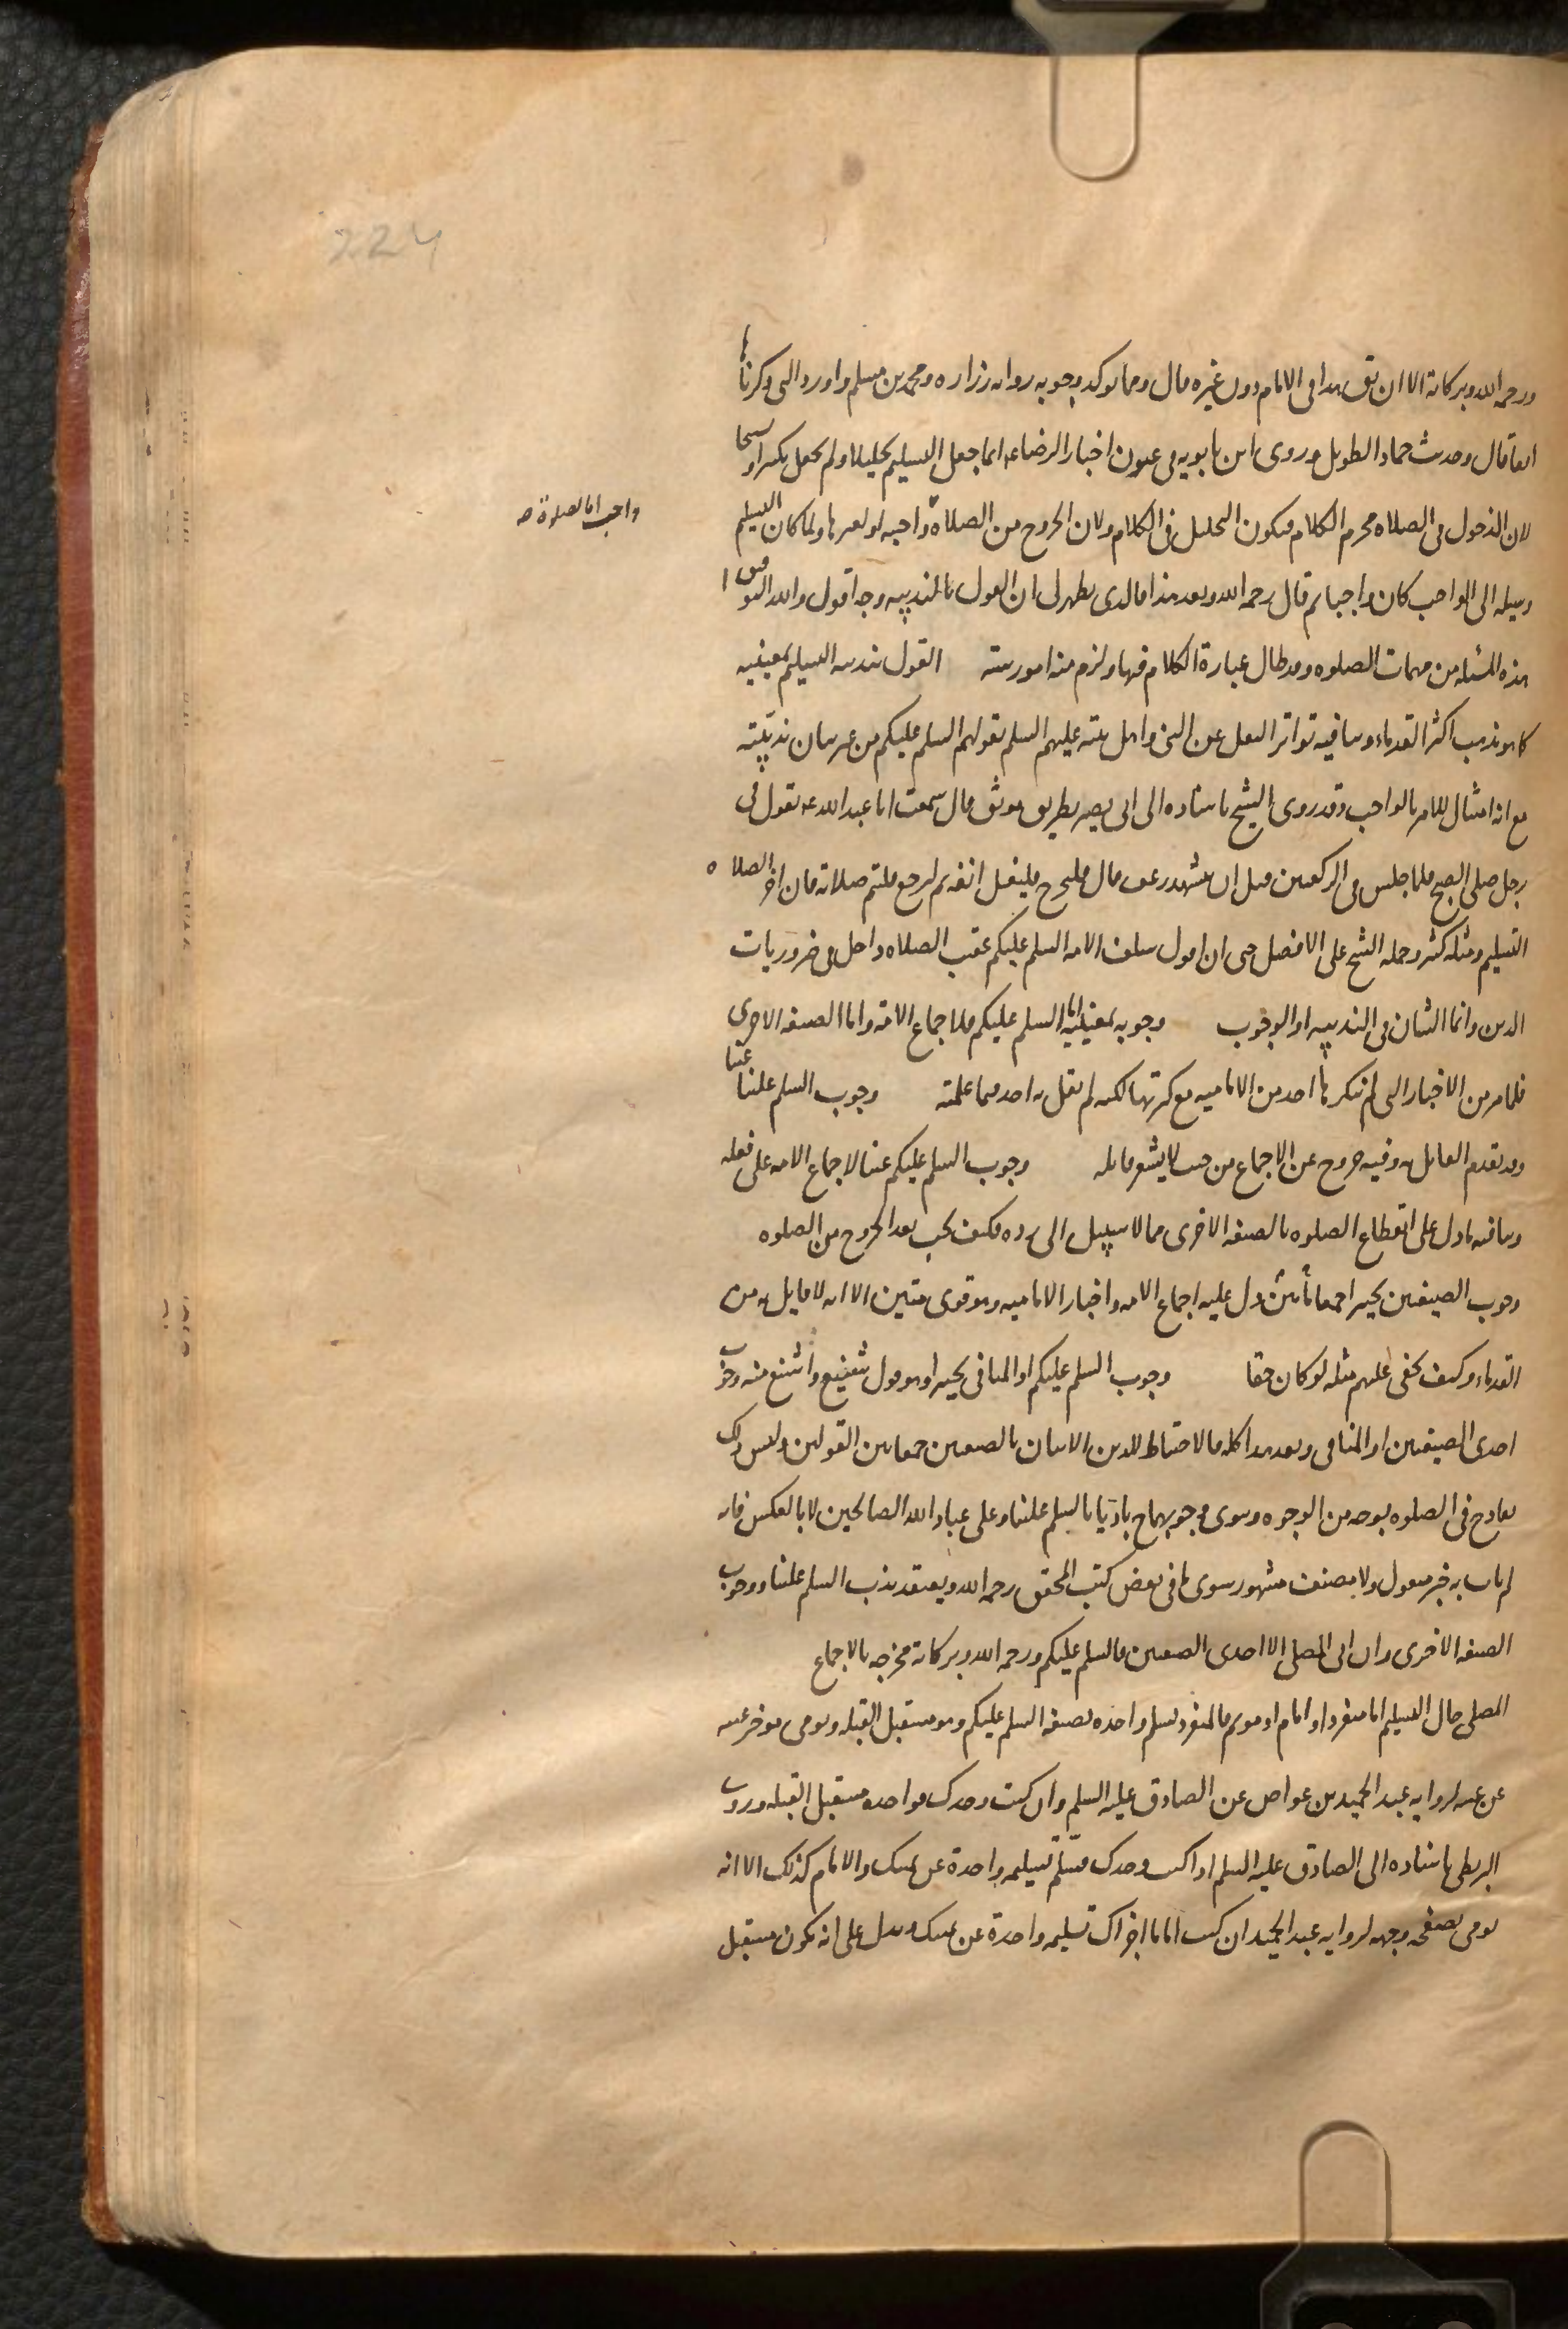 224
ورحمه الله وبركاته الا ان يق هذا فى الامام دون غيره قال ومما يوكد وجوبه روايه زراره ومحمد بن مسلم واورد التى ذكرناها
انفا قال وحديث حماد الطويل وروى ابن بابويه فى عيون اخبار الرضا عه انما جعل التسليم تحليلا ولم يجعل تكبيرا وتسبيحا
لان الدخول فى الصلاه محرم الكلام فيكون التحليل فى الكلام ولان الخروج من الصلاه واجب ولما كان التسليم
واجب اما لصلوة صه
وسيله الى الواجب كان واجبا ثم قال رحمه الله وبعد هذا فالذى يظهر لى ان القول بالمندبيه وجه اقول والله الموفق
هذه المسئله من مهمات الصلوه وقد طال عبارة الكلام فيها ولزم منه امور سته القول بندبيه التسليم بمعنييه
كما هو مذهب اكثر القدماء وينافيه تواتر النقل عن النبى واهل بيته عليهم السلم بقولهم السلم عليكم من غير بيان ندبيته
مع انه امتثال للامر بالواجب وقد روى الشيخ باسناده الى ابى بصير بطريق موثق قال سمعت ابا عبد الله عه يقول فى
رجل صلى الصبح فلما جلس فى الركعتين قبل ان يتشهد رعف قال فليخرج فليغسل انفه ثم ليرجع فليتم صلاته فان اخر الصلاه
التسليم ومثله كثير وحمله الشيخ على الافضل حتى ان اقول سلف الامه السلم عليكم عقب الصلاه داخل فى ضروريات
الدين وانما الشان فى الندبيه او الوجوب وجوبه بمعنييه اما السلم عليكم فلاجماع الامة واما الصيغه الاخرى
فلما مر من الاخبار التى لم ينكرها احد من الاماميه مع كثرتها لكنه لم يقل به احد فيما علمته وجوب السلم علينا عينا
وقد تقدم القايل به وفيه خروج عن الاجماع من حيث لا يشعر قايله وجوب السلم عليكم عينا لاجماع الامه على فعله
وينافيه ما دل على انقطاع الصلوه بالصيغه الاخرى مما لا سبيل الى رده فكيف يجب بعد الخروج من الصلوه
وجوب الصيغتين تخييرا جمعا بين ما دل عليه اجماع الامه واخبار الاماميه وهو قوى متين الا انه لا قايل به من
القدماء وكيف يخفى عليهم مثله لو كان حقا وجوب السلم عليكم او المنافى تخييرا وهو قول شنيع واشنع منه وجوب
احدى الصيغتين او المنافى وبعد هذا كله فالاحتياط للدين الاتيان بالصيغتين جمعا بين القولين وليس ذلك
بقادح فى الصلوه بوجه من الوجوه وسوى وجوبهما باديا بالسلم علينا وعلى عباد الله الصالحين لا بالعكس فانه
لم يات به خبر منقول ولا مصنف مشهور سوى ما فى بعض كتب المحقق رحمه الله ويعتقد ندب السلم علينا ووجوب
الصيغه الاخرى وان ابى المصلى الا احدى الصيغتين فالسلم عليكم ورحمه الله وبركاته مخرجه بالاجماع
المصلى حال التسليم اما منفردا او امام او موتم فالمنفرد يسلم واحده بصيغه السلم عليكم وهو مستقبل القبله ويومى بموخر عينه
عن يمينه لروايه عبد الحميد بن عواض عن الصادق عليه السلم وان كنت وحدك فواحده مستقبل القبله وروى
البزنطى باسناده الى الصادق عليه السلم اذا كنت وحدك فسلم تسليمه واحدة عن يمينك والامام كذلك الا انه
يومى بصفحه وجهه لروايه عبد الحميد ان كنت اماما اجزاك تسليمه واحدة عن يمينك ويدل على انه يكون مستقبل